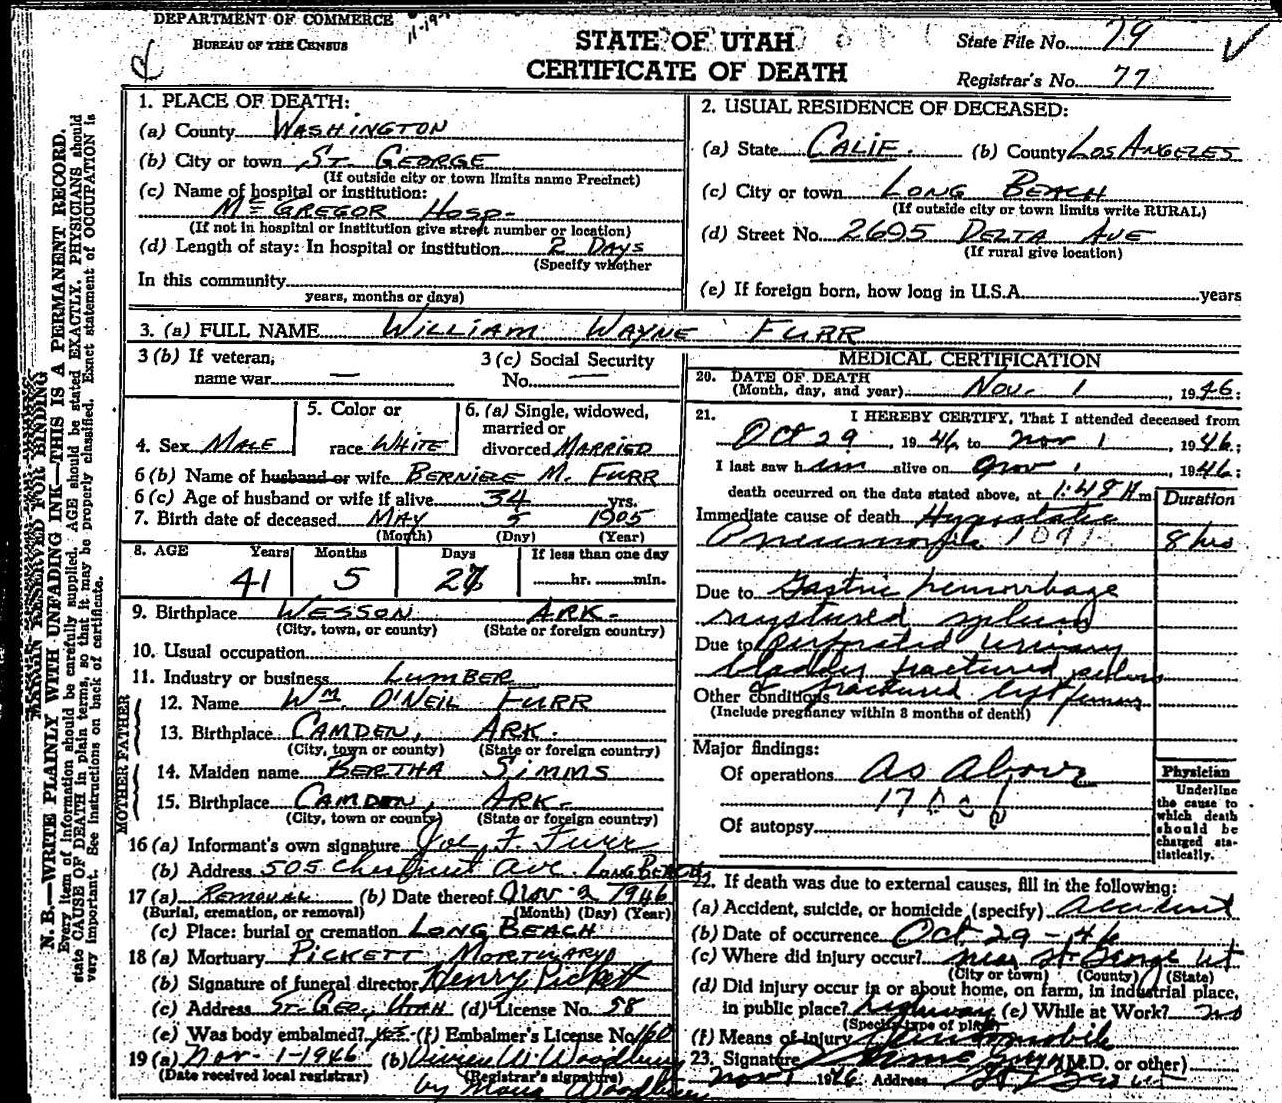 DEPARTMENT OF COMMERCE
BUREAU OF THE CENSUS
STATE OF UTAH
CERTIFICATE OF DEATH
State File No. 79
Registrar's No. 77
N. B.—WRITE PLAINLY WITH UNFADING INK—THIS IS A PERMANENT RECORD.
MARGIN RESERVED FOR BINDING
Every item of information should be carefully supplied. AGE should be stated EXACTLY. PHYSICIANS should
state CAUSE OF DEATH in plain terms, so that it may be properly classified. Exact statement of OCCUPATION is
very important. See instructions on back of certificate.
1. PLACE OF DEATH:
(a) County WASHINGTON
(b) City or town ST. GEORGE
(If outside city or town limits name Precinct)
(c) Name of hospital or institution:
McGREGOR HOSP.
(If not in hospital or institution give street number or location)
(d) Length of stay: In hospital or institution 2 DAYS
(Specify whether
In this community
years, months or days)
2. USUAL RESIDENCE OF DECEASED:
(a) State CALIF. (b) County LOS ANGELES
(c) City or town LONG BEACH
(If outside city or town limits write RURAL)
(d) Street No. 2695 DELTA AVE
(If rural give location)
(e) If foreign born, how long in U.S.A. years
3. (a) FULL NAME WILLIAM WAYNE FURR
3 (b) If veteran, name war —
3 (c) Social Security No. —
4. Sex MALE
5. Color or race WHITE
6. (a) Single, widowed, married or divorced MARRIED
6 (b) Name of husband or wife BERNIECE M. FURR
6 (c) Age of husband or wife if alive 34 yrs.
7. Birth date of deceased MAY 5 1905
(Month) (Day) (Year)
8. AGE Years Months Days If less than one day
41 5 27 hr. min.
9. Birthplace WESSON ARK.
(City, town, or county) (State or foreign country)
10. Usual occupation
11. Industry or business LUMBER
FATHER
12. Name WM. O'NEIL FURR
13. Birthplace CAMDEN, ARK.
(City, town or county) (State or foreign country)
MOTHER
14. Maiden name BERTHA SIMMS
15. Birthplace CAMDEN, ARK.
(City, town or county) (State or foreign country)
16 (a) Informant's own signature F. Furr
(b) Address 505 Chestnut Ave LONG BEACH
17 (a) REMOVAL (b) Date thereof Nov 2 1946
(Burial, cremation, or removal) (Month) (Day) (Year)
(c) Place: burial or cremation LONG BEACH
18 (a) Mortuary PICKETT MORTUARY
(b) Signature of funeral director Henry Pickett
(c) Address ST. GEO., UTAH (d) License No. 58
(e) Was body embalmed? yes (f) Embalmer's License No. 160
19 (a) Nov-1-1946 (b) Vivien W. Woodbury
(Date received local registrar) (Registrar's signature)
by Woodbury
MEDICAL CERTIFICATION
20. DATE OF DEATH
(Month, day, and year) Nov. 1, 1946:
21. I HEREBY CERTIFY, That I attended deceased from
Oct 29, 1946 to Nov 1, 1946;
I last saw him alive on Nov 1, 1946;
death occurred on the date stated above, at 1:48 A m
Duration
Immediate cause of death Hypostatic
Pneumonia 8 hrs
Due to Gastric hemorrhage
ruptured spleen
Due to perforated urinary
bladder fractured pelvis
Other conditions & fractured left femur
(Include pregnancy within 3 months of death)
Major findings:
Of operations As Above
Of autopsy
Physician
Underline
the cause to
which death
should be
charged sta-
tistically.
22. If death was due to external causes, fill in the following:
(a) Accident, suicide, or homicide (specify) accident
(b) Date of occurrence Oct-29-46
(c) Where did injury occur? near St George Ut
(City or town) (County) (State)
(d) Did injury occur in or about home, on farm, in industrial place,
in public place? highway (e) While at Work? no
(Specify type of place)
(f) Means of injury Automobile
23. Signature (M.D. or other)
Nov 1 1946 Address